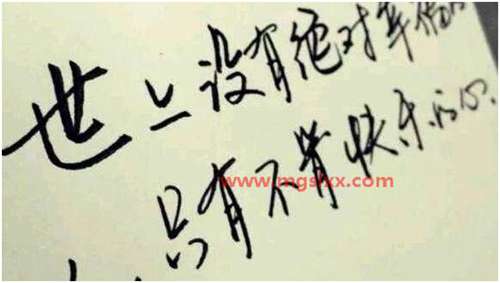 世上没有绝对幸福的
只有不肯快乐的心
www.mgslxx.com